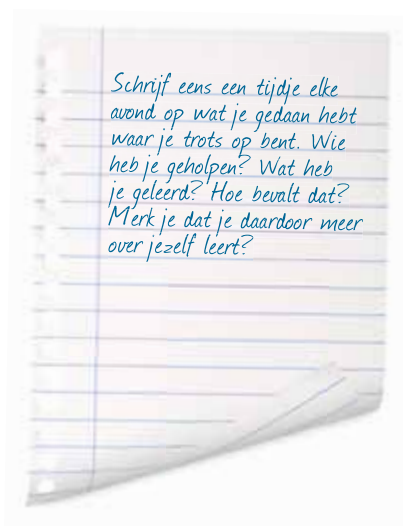 Schrijf eens een tijdje elke
avond op wat je gedaan hebt
waar je trots op bent. Wie
heb je geholpen? Wat heb
je geleerd? Hoe bevalt dat?
Merk je dat je daardoor meer
over jezelf leert?